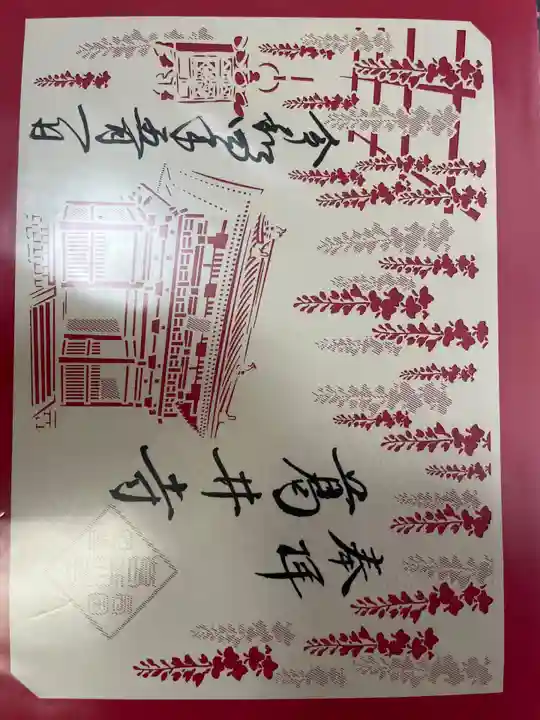 奉拝
葛井寺
令和四年五月一日